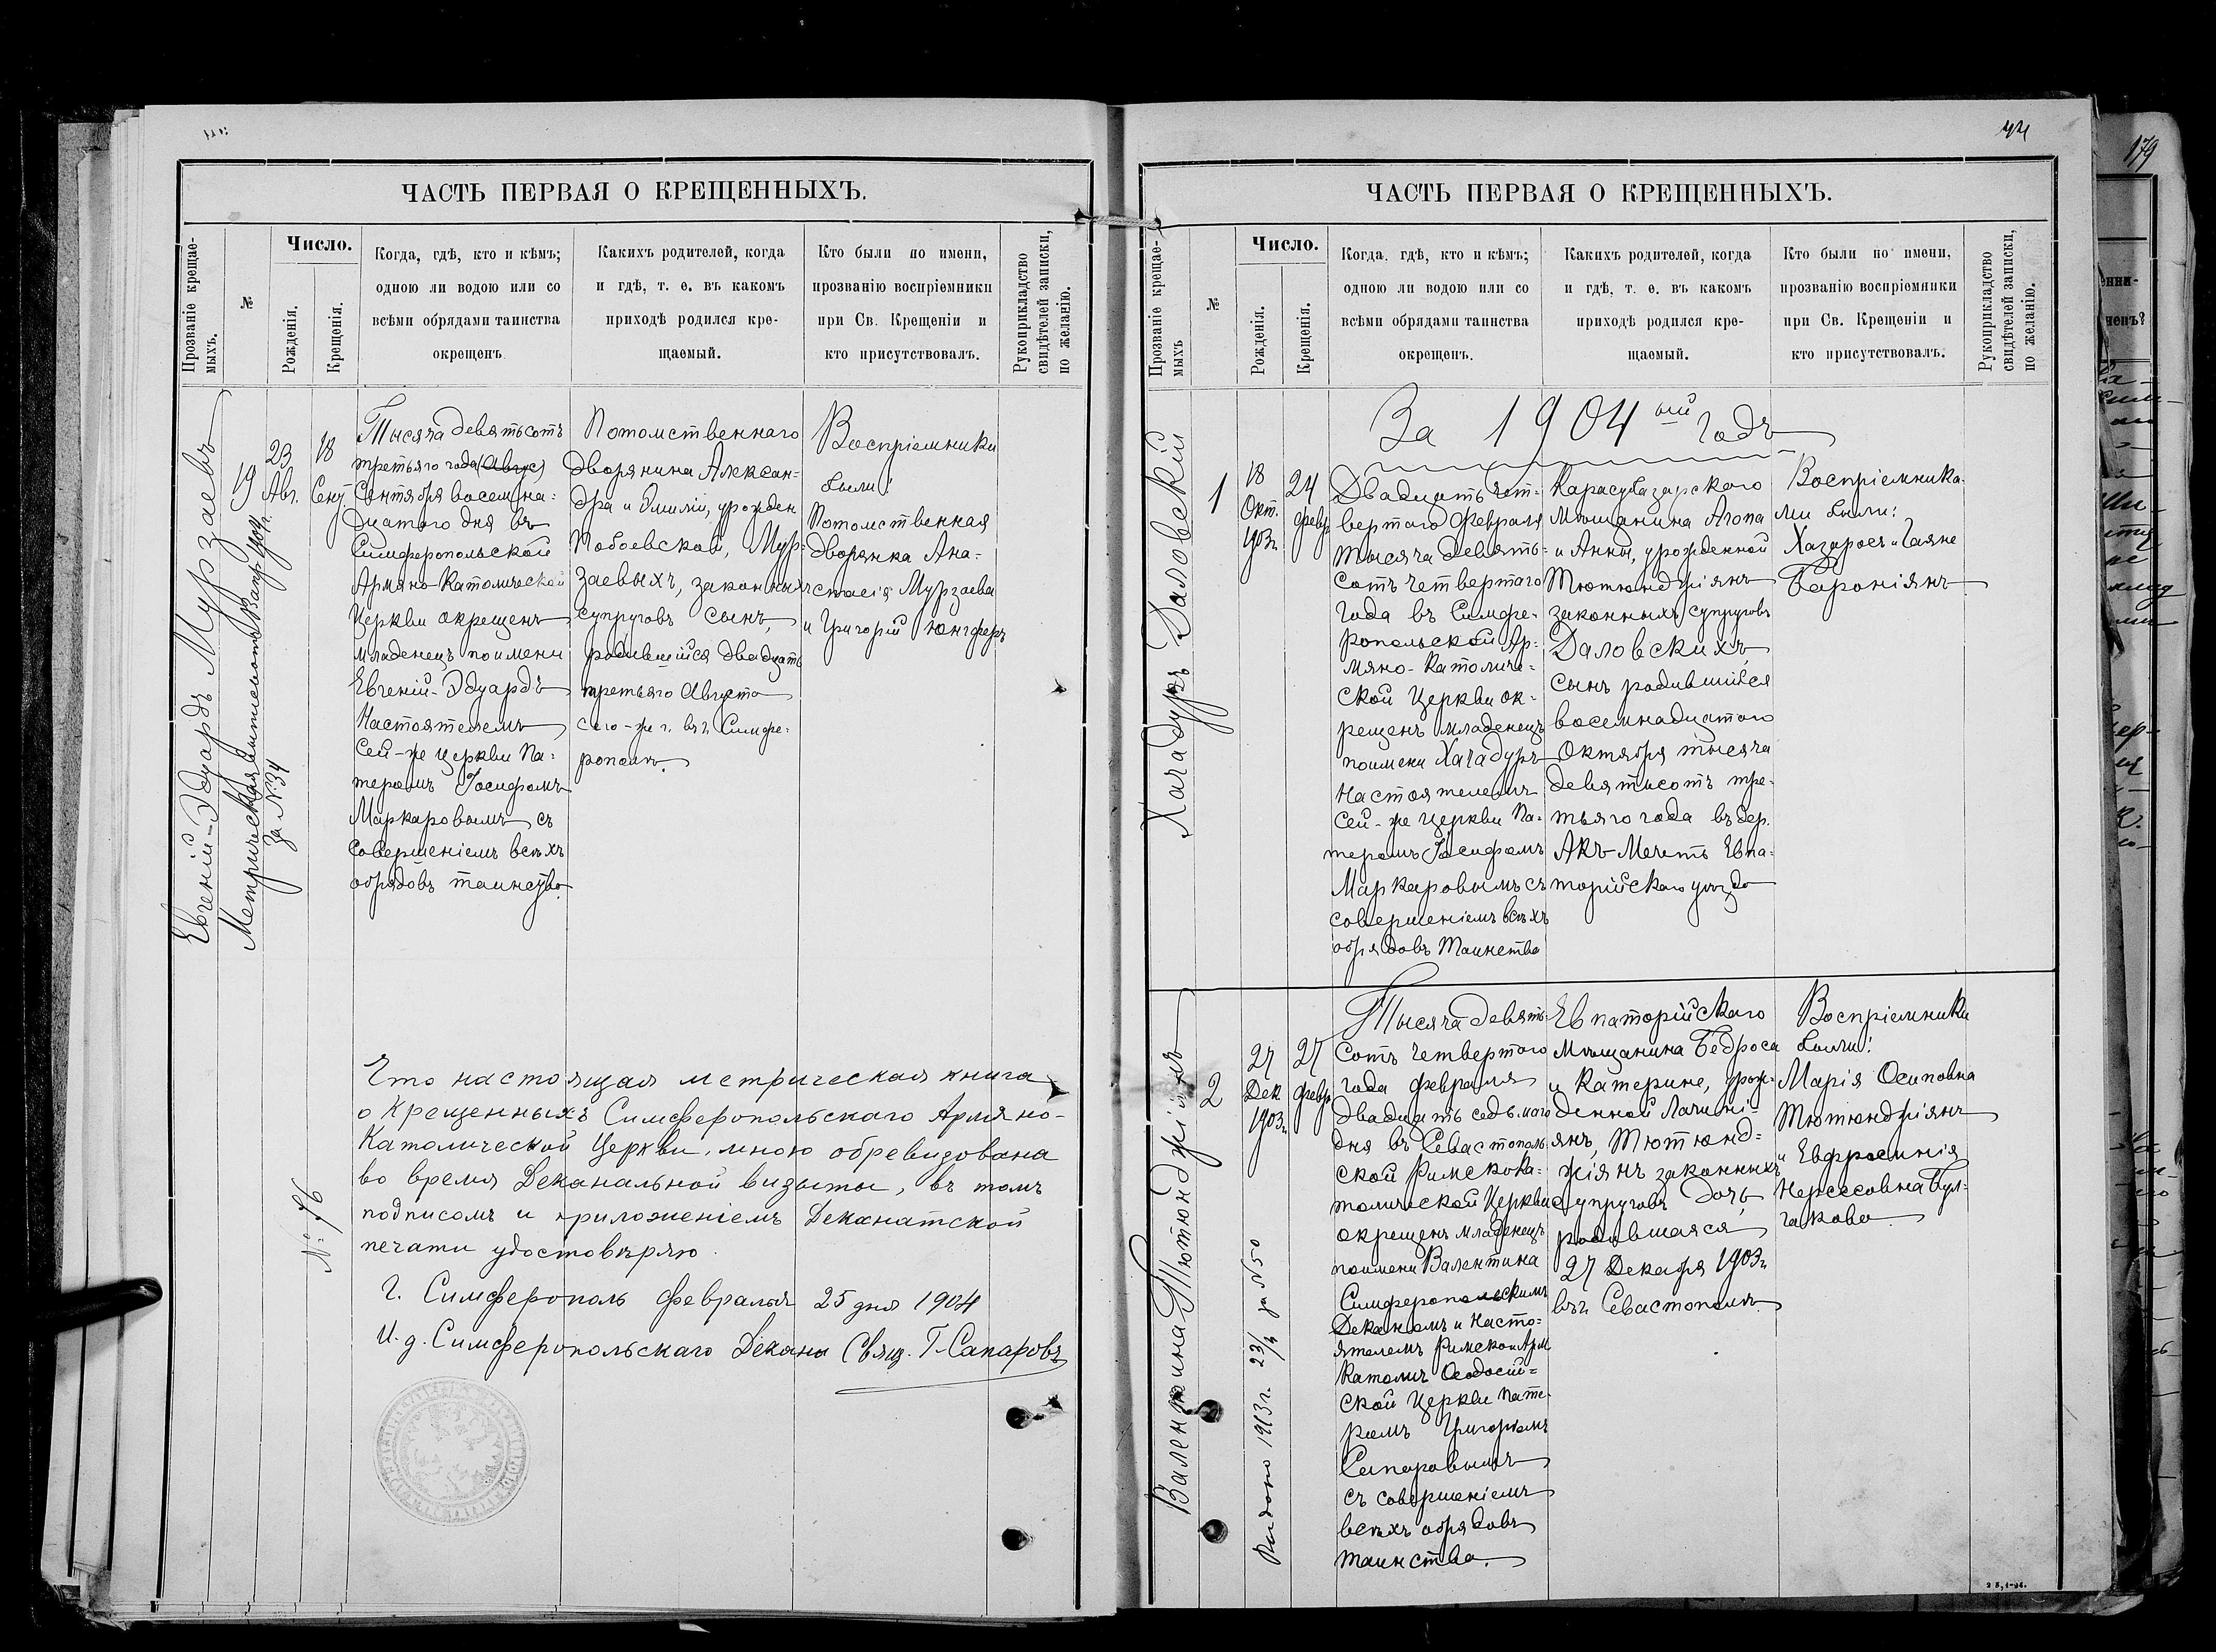 ЧАСТЬ ПЕРВАЯ О КРЕЩЕННЫХЪ.
Прозваніе крещае-
мыхъ.
№
Число.
Рожденія.
Крещенія.
Когда, гдѣ, кто и кѣмъ;
одною ли водою или со
всѣми обрядами таинства
окрещенъ.
Какихъ родителей, когда
и гдѣ, т. е. въ какомъ
приходѣ родился кре-
щаемый.
Кто были по имени,
прозванію воспріемники
при Св. Крещеніи и
кто присутствовалъ.
Рукоприкладство
свидѣтелей записки,
по желанію.
Евгеній-Эдуардъ Мурзаевъ
Метрическая выписи
за №34
19
23
Авг.
18
Сент.
Тысяча девятьсотъ
третьяго года (Август)
Сентября восемна-
дцатого дня въ
Симферопольской
Армяно-Католической
Церкви окрещенъ
младенецъ по имени
Евгеній-Эдуардъ
Настоятелемъ
сей-же церкви Па-
теромъ Іосифомъ
Маркаровымъ съ
совершеніемъ всѣхъ
обрядовъ таинства.
Потомственнаго
дворянина Алексан-
дра и Эмиліи, урожден
Побоевской, Мур-
заевыхъ, законныхъ
супруговъ сынъ,
родившійся двадцать
третьяго Августа
сего-же г. въ г. Симфе-
рополѣ.
Воспріемники
были:
Потомственная
дворянка Ана-
стасія Мурзаева
и Григорій Юнгферъ
№ 76
Что настоящая метрическая книга
о Крещенныхъ Симферопольскаго Армяно-
Католической Церкви, мною обревизована
во время Деканальной визиты, въ томъ
подписомъ и приложеніемъ Деканатской
печати удостовѣряю.
Г. Симферополь февраля 25 дня 1904
И. д. Симферопольскаго Декана Свящ. Г. Сапаровъ
44
ЧАСТЬ ПЕРВАЯ О КРЕЩЕННЫХЪ.
Прозваніе крещае-
мыхъ
№
Число.
Рожденія.
Крещенія.
Когда, гдѣ, кто и кѣмъ;
одною ли водою или со
всѣми обрядами таинства
окрещенъ.
Какихъ родителей, когда
и гдѣ, т. е. въ какомъ
приходѣ родился кре-
щаемый.
Кто были по имени,
прозванію воспріемники
при Св. Крещеніи и
кто присутствовалъ.
Рукоприкладство
свидѣтелей записки,
по желанію.
За 1904 ый годъ
Хачадуръ Даловскій
1
18
Окт.
1903 г.
24
февр.
Двадцать чет-
вертаго Февраля
тысяча девять-
сотъ четвертаго
года въ Симфе-
ропольской Ар-
мяно-Католиче-
ской Церкви ок-
рещенъ младенецъ
поимени Хачадуръ
Настоятелемъ
сей-же церкви Па-
теромъ Іосифомъ
Маркаровымъ съ
совершеніемъ всѣхъ
обрядовъ Таинства
Карасубазарскаго
Мѣщанина Агопа
и Анны, урожденной
Тютюнджіянъ
законныхъ супруговъ
Даловскихъ,
сынъ родившійся
восемнадцатого
Октября тысяча
девятьсотъ тре-
тьяго года въ дер.
Акъ-Мечеть Евпа-
торійскаго уѣзда
Воспріемника-
ми были:
Хазаросъ и Гаяне
Бароніянъ
Валентина Тютюнджіянъ
2
27
Дек
1903 г.
27
февр.
Выдано 1913 г. 23/4 за №50
Тысяча девять-
сотъ четвертого
года февраля
двадцать седьмаго
дня въ Севастополь-
ской Римско Ка-
толической Церкви
окрещенъ младенецъ
поимени Валентина
Симферопольскимъ
Деканомъ и Насто-
ятелемъ Римско и Арм
Католич Ѳеодосій-
ской Церкви Пате-
ромъ Григоріемъ
Сапаровымъ
съ совершеніемъ
всѣхъ обрядовъ
таинства.
Евпаторійскаго
Мѣщанина Бедроса
и Катерине, урож-
денной Лачині-
янъ, Тютюнд-
жіянъ законныхъ
супруговъ дочь,
родившаяся
27 Декабря 1903 г.
въ г. Севастополѣ.
Воспріемники
были:
Марія Осиповна
Тютюнджіянъ
и Евфросинія
Нерсесовна Бул-
гакова.
179